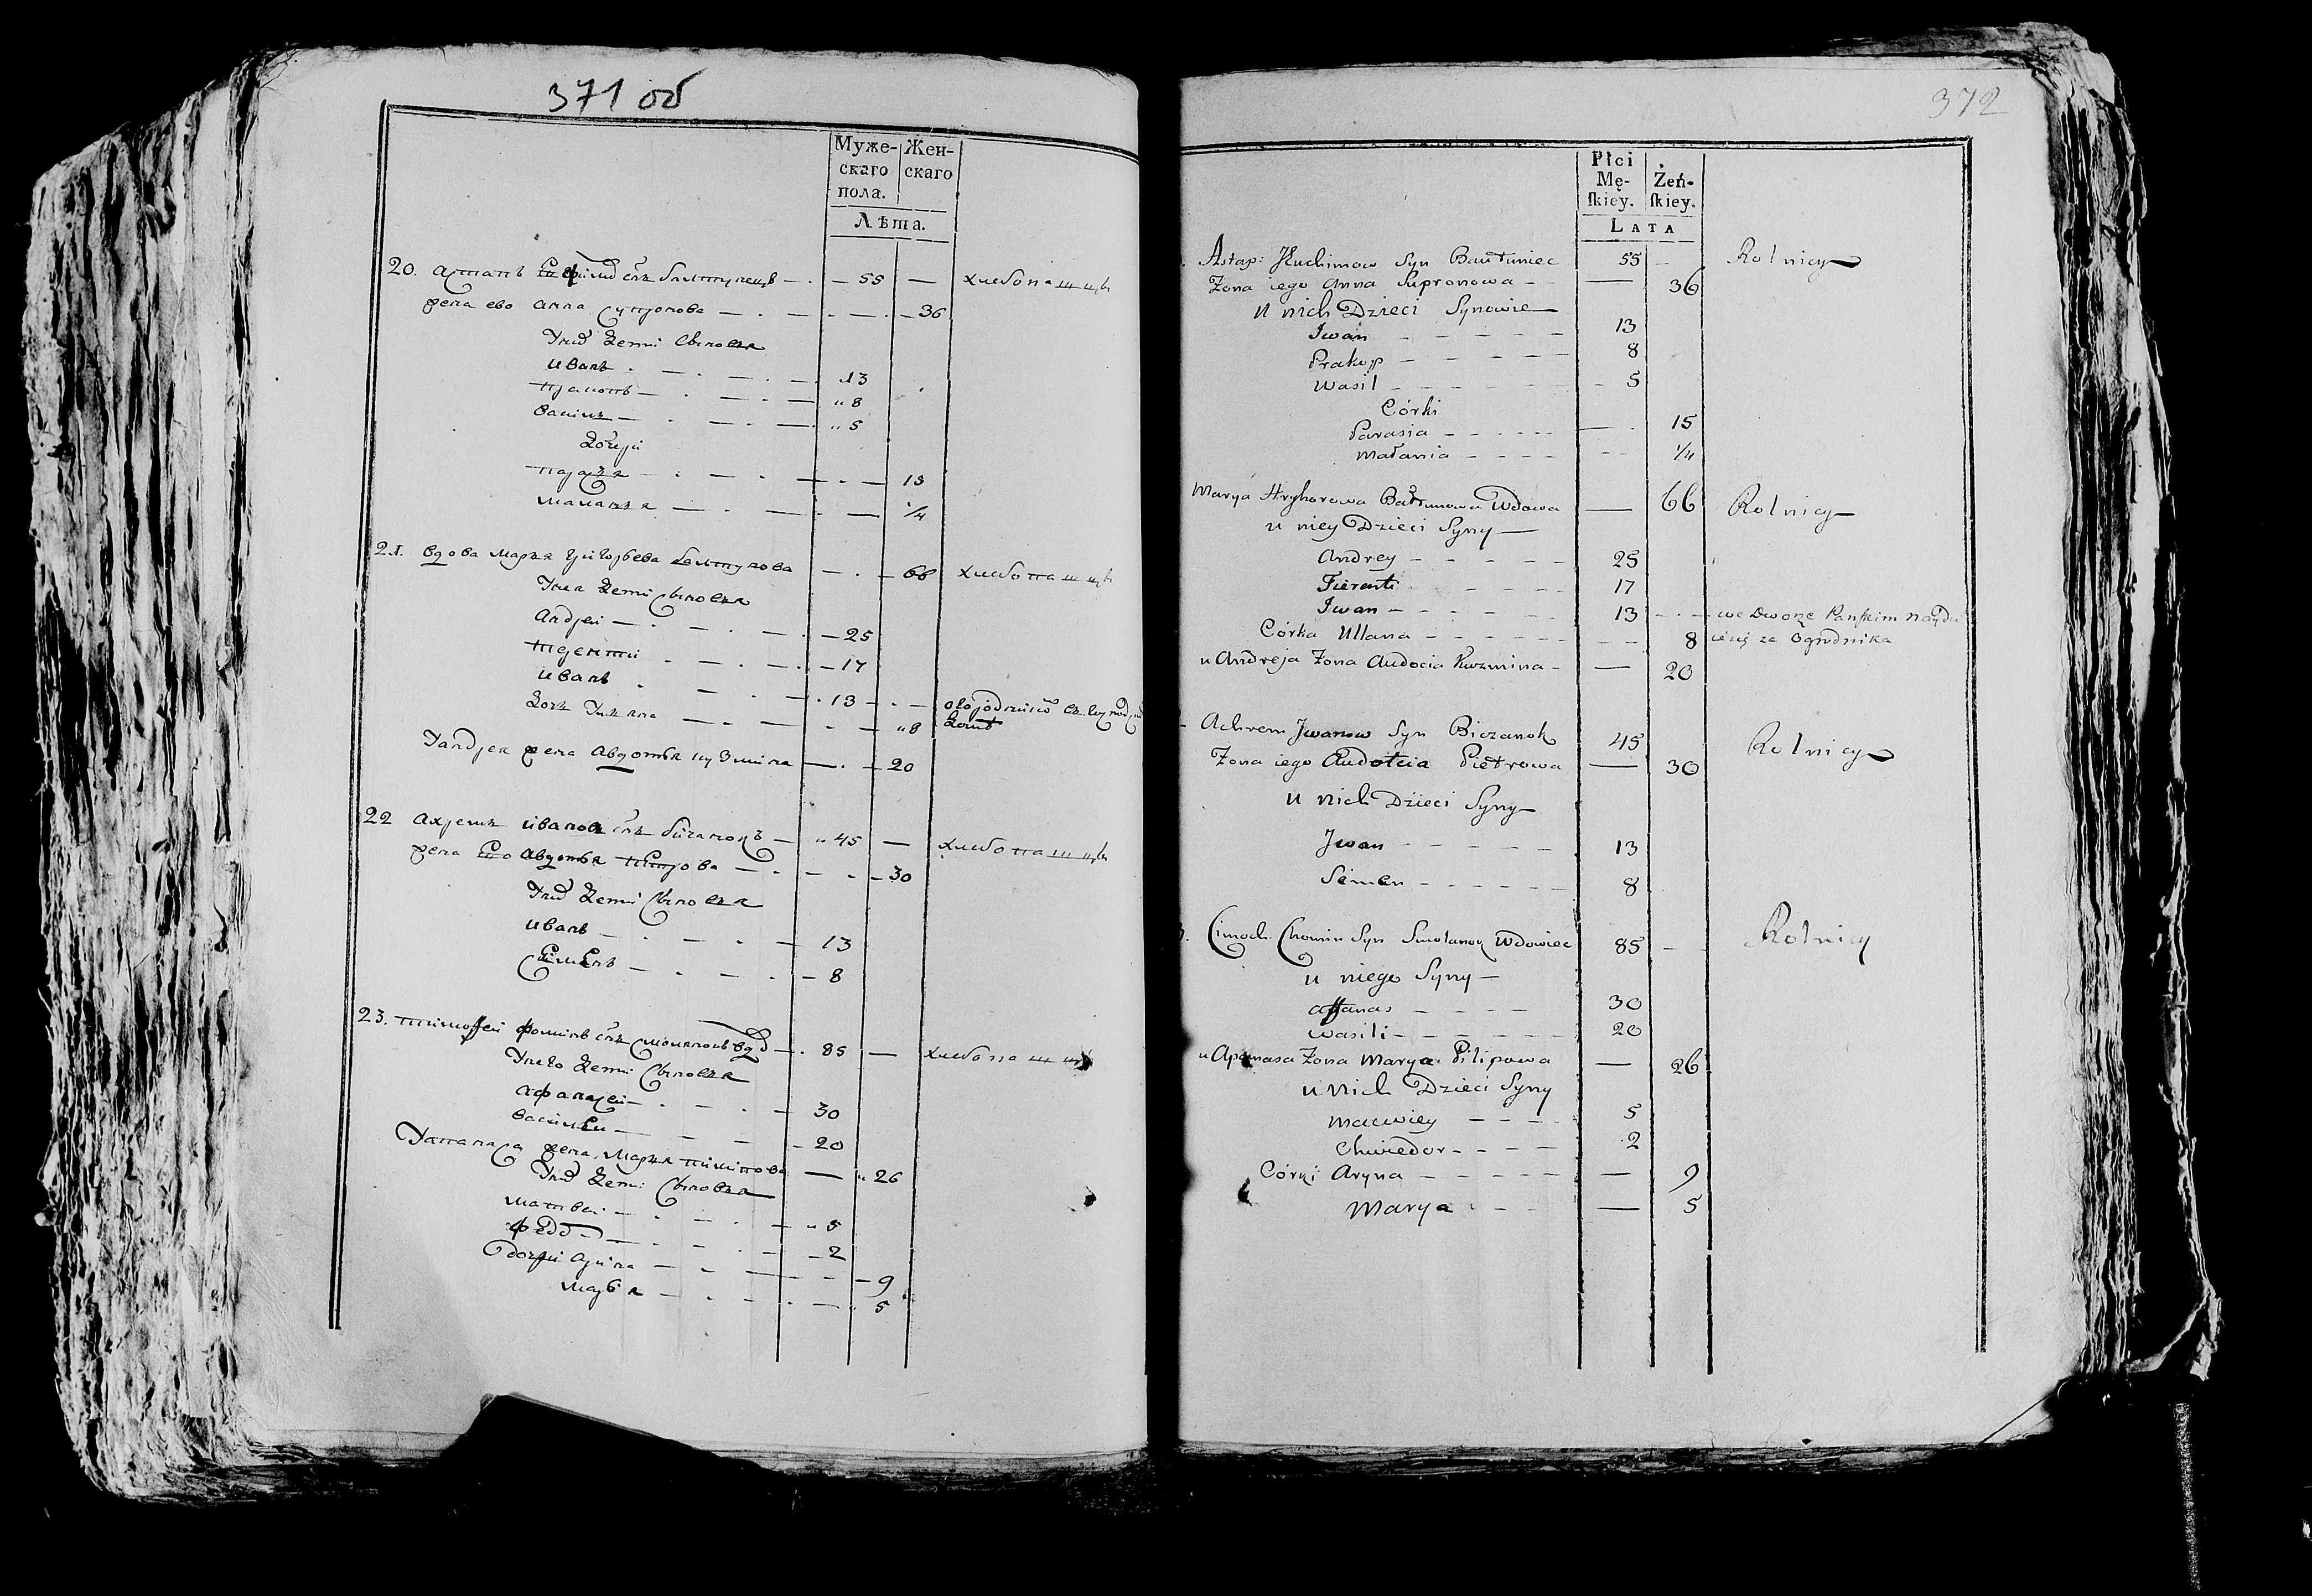 371 об
Муже-
скаго
пола.
Жен-
скаго
Лѣта.
20. Астапъ Ефимовъ снъ — 55 — хлебопашцы
жена ево анна супронова — 36
У них дети Сыновья
иванъ — 13
прокопъ — 8
василь — 5
Дочери
парасья — 15
маланья — 1/4
21. вдова Марья григорьева — 66 хлебопашцы
У нея дети Сыновья
андрей — 25
терентий — 17
иванъ — 13 —
дочь Ульяна — 8
У андрея жена авдотья кузмина — 20
22 ахремъ ивановъ снъ бичанокъ — 45 — хлебопашцы
жена Ево авдотья петрова — 30
У них дети Сыновья
иванъ — 13
Семенъ — 8
23. тимофей фоминъ снъ смоляновъ вдов — 85 — хлебопашцы
У него дети Сыновья
афанасей — 30
василей — 20
У апанаса жена Марья пилипова — 26
У них дети Сыновья
матвей — 5
федор — 2
дочери арина — 9
марья — 5
372
Płci
Mę-
ſkiey.
Żeń-
ſkiey.
LATA
Astap: Juchimow Syn Bautuniec 55 — Rolnicy
Zona iego Anna Supronowa — 36
U nich Dzieci Synowie
Iwan — 13
Prakop — 8
Wasil — 5
Córki
Parasia — 15
Małania — 1/4
Marya Hryhorowa Wdowa — 66 Rolnicy
u niey Dzieci Syny
Andrey — 25
Tierenti — 17
Iwan — 13 — we Dworze Pańskim naydu
Córka Ullana — 8 iesię za Ogrodnika
u Andreja Zona Audocia Kuzmina — 20
Achrem Jwanow Syn Biczanok 45 Rolnicy
Zona iego Audotcia Pietrowa — 30
u nich Dzieci Syny
Jwan — 13
Siemen — 8
Cimoch Chomin Syn Smolanoy Wdowiec 85 — Rolnicy
u niego Syny
affanas — 30
Wasili — 20
u Apanasa Zona Marya Pilipowa — 26
u nich Dzieci Syny
Maciwiey — 5
Chwiedor — 2
Córki Aryna — 9
Marya — 5